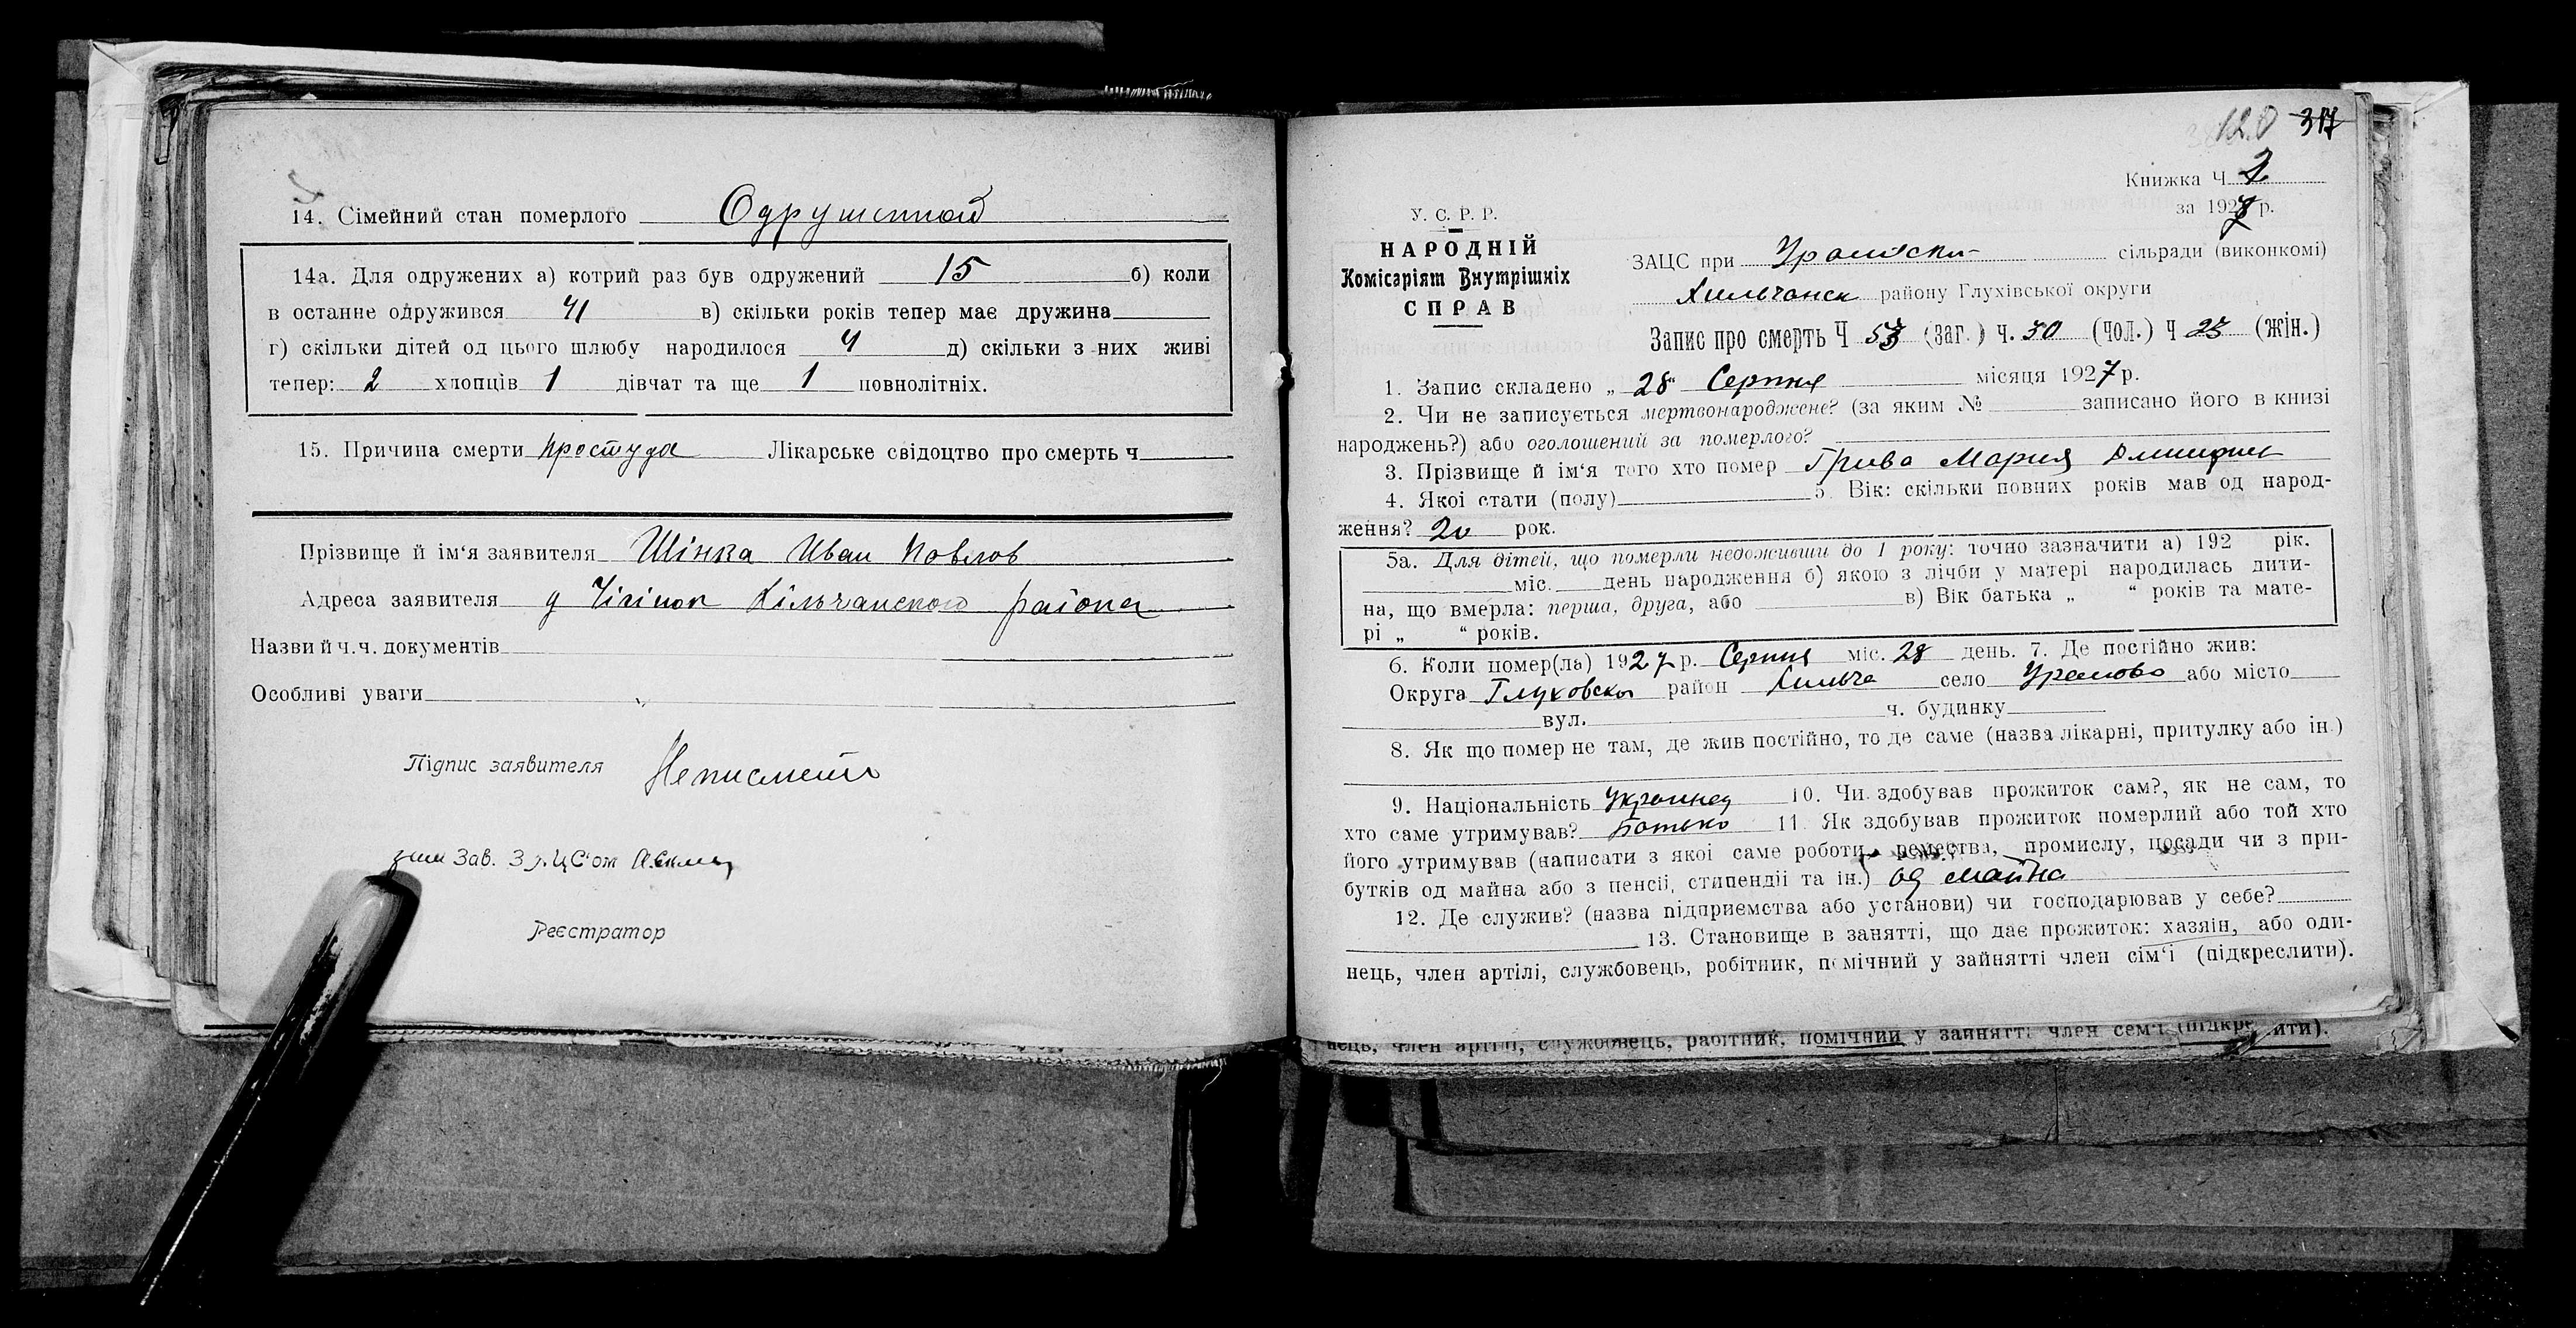 14. Сімейний стан померлого Одрушеной
14а. Для одружених а) котрий раз був одружений 15 б) коли
в останне одружився 41 в) скільки років тепер має дружина
г) скільки дітей од цього шлюбу народилося 4 д) скільки з них живі
тепер: 2 хлопців 1 дівчат та ще 1 повнолітніх.
15. Причина смерти простуда Лікарське свідоцтво про смерть ч
Прізвище й ім‘я заявителя Шінка Иван Повлов
Адреса заявителя Хільчанского района
Назви й ч.ч. документів
Особливі уваги
Підпис заявителя
Зав. ЗАЦС‘ом
Реєстратор
120 317
Книжка Ч 2
за 1927 р.
У. С. Р. Р.
НАРОДНІЙ
Комісаріят Внутрішніх
СПРАВ
ЗАЦС при сільради (виконкомі)
Хильчанск району Глухівської округи
Запис про смерть Ч 53 (заг.) ч. 30 (чол.) Ч 23 (жін.)
1. Запис складено „ 28“ Серпня місяця 1927 р.
2. Чи не записується мертвонароджене? (за яким № записано його в книзі
народжень?) або оголошений за померлого?
3. Прізвище й ім‘я того хто помер Грива Мария
4. Якої стати (полу) 5. Вік: скільки повних років мав од народ-
ження? 20 рок.
5а. Для дітей, що померли недоживши до 1 року: точно зазначити а) 192 рік.
міс. день народження б) якою з лічби у матері народилась дити-
на, що вмерла: перша, друга, або в) Вік батька „ “ років та мате-
рі „ “ років.
6. Коли помер(ла) 1927 р. Серпня міс. 28 день. 7. Де постійно жив:
Округа Глуховска район Хильча село Уралово або місто
вул. ч. будинку
8. Як що помер не там, де жив постійно, то де саме (назва лікарні, притулку або ін.)
9. Національність Украинец 10. Чи здобував прожиток сам?, як не сам, то
хто саме утримував? Батько 11. Як здобував прожиток померлий або той хто
його утримував (написати з якої саме роботи, ремества, промислу, посади чи з при-
бутків од майна або з пенсії, стипендії та ін.) од майна
12. Де служив? (назва підприємства або установи) чи господарював у себе?
13. Становище в занятті, що дає прожиток: хазяїн, або оди-
нець, член артілі, службовець, робітник, помічний у зайнятті член сім‘ї (підкреслити).
нець, член артілі, службовець, рабітник, помічний у зайнятті член сем‘ї